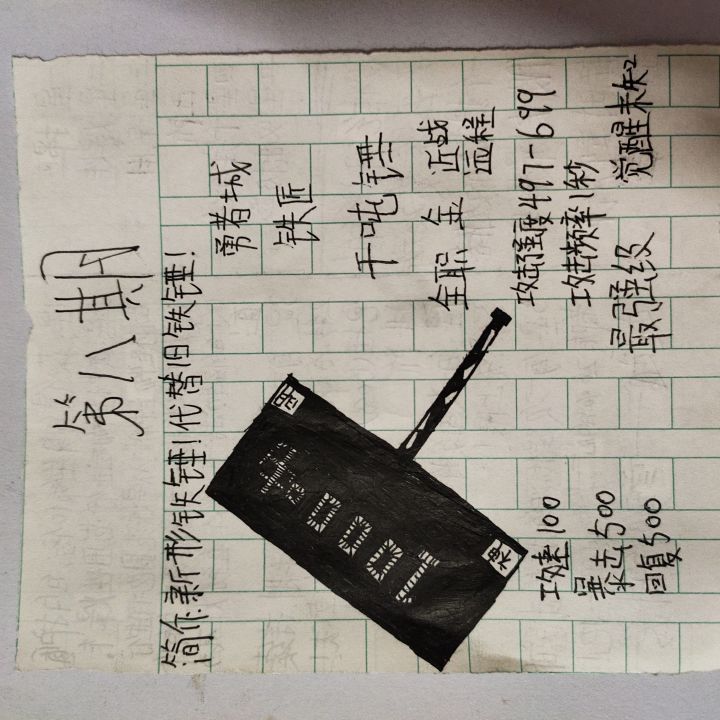 第八期
简介:新形铁锤!代替旧铁锤!
勇者城
铁匠
千吨锤
全职 金 近战
远程
攻击强度497-699
攻击频率1秒
最强级 觉醒未知
1000
神
攻速100
暴击500
回复500